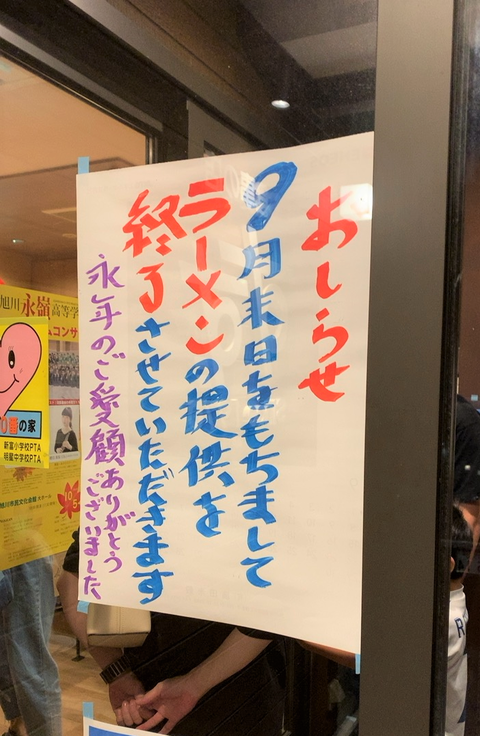 おしらせ
9月末日をもちまして
ラーメンの提供を
終了させていただきます
永年のご愛顧ありがとう
ございました
旭川永嶺高等学
ムコンサ
0番の家
新富小学校PTA
明星中学校PTA